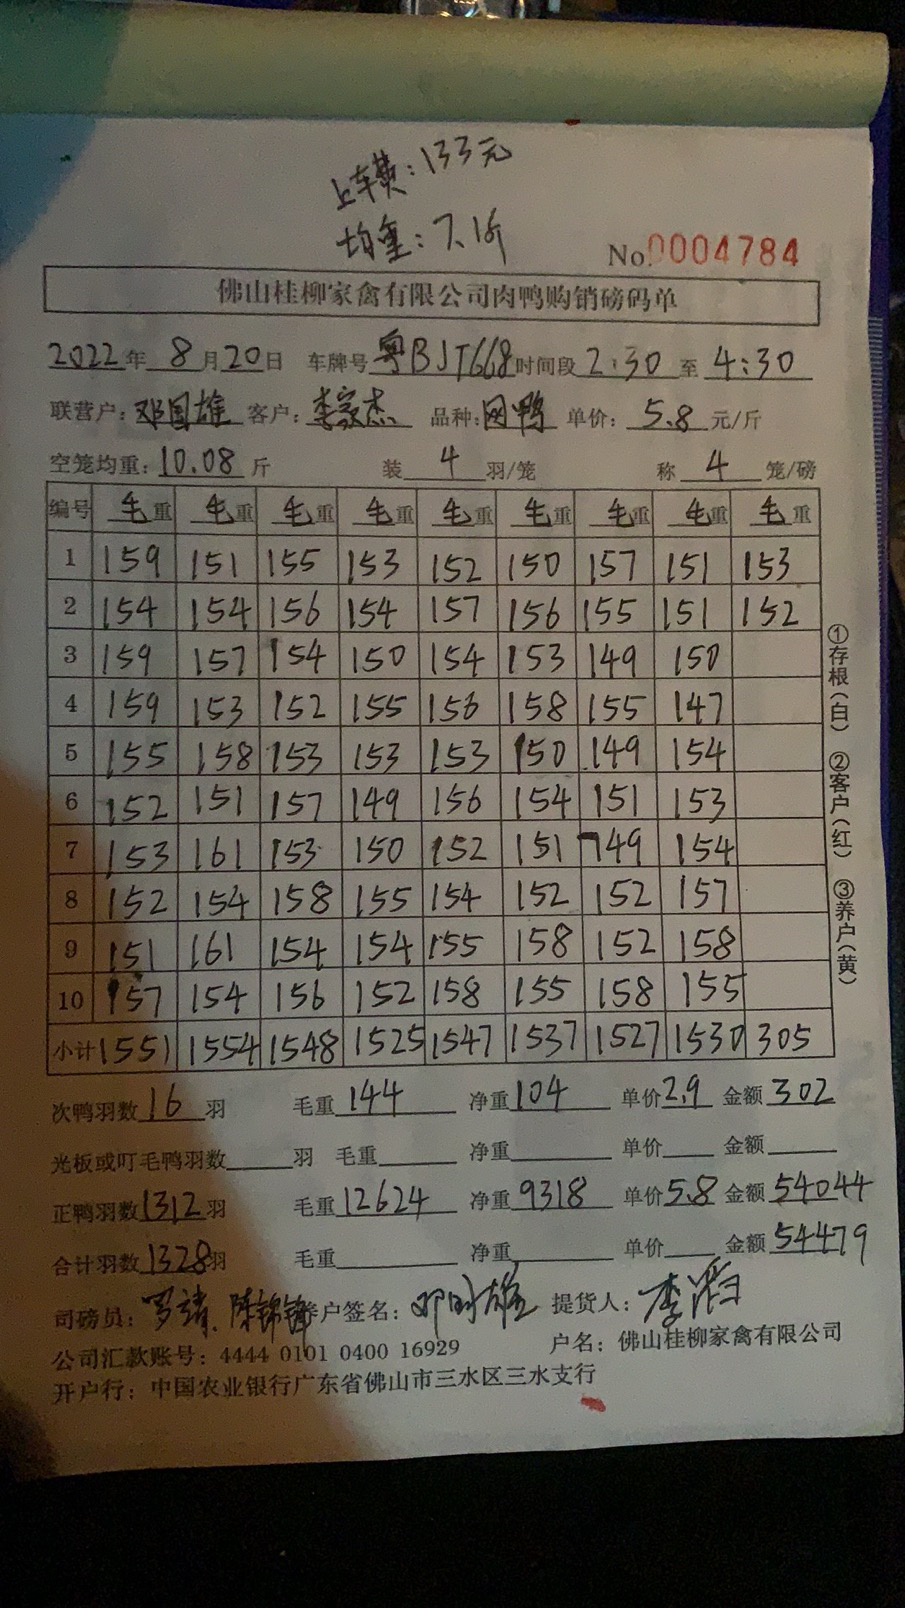 上车费：133元
均重：7.1斤
No.0004784
佛山桂柳家禽有限公司肉鸭购销磅码单
2022年 8月20日 车牌号 粤BJT668 时间段 2:30 至 4:30
联营户：邓国雄 客户：李家杰 品种：网鸭 单价：5.8 元/斤
空笼均重：10.08 斤 装 4 羽/笼 称 4 笼/磅
编号 毛重 毛重 毛重 毛重 毛重 毛重 毛重 毛重 毛重
1 159 151 155 153 152 150 157 151 153
2 154 154 156 154 157 156 155 151 152
3 159 157 154 150 154 153 149 150
4 159 153 152 155 156 158 155 147
5 155 158 153 153 153 150 149 154
6 152 151 157 149 156 154 151 153
7 153 161 153 150 152 151 149 154
8 152 154 158 155 154 152 152 157
9 151 161 154 154 155 158 152 158
10 157 154 156 152 158 155 158 155
小计 1551 1554 1548 1525 1547 1537 1527 1530 305
①存根（白） ②客户（红） ③养户（黄）
次鸭羽数 16 羽 毛重 144 净重 104 单价 2.9 金额 302
光板或叮毛鸭羽数 羽 毛重 净重 单价 金额
正鸭羽数 1312 羽 毛重 12624 净重 9318 单价 5.8 金额 54044
合计羽数 1328 羽 毛重 净重 单价 金额 54479
司磅员：罗靖、陈锦锋 养户签名：邓国雄 提货人：李
公司汇款账号：4444 0101 0400 16929 户名：佛山桂柳家禽有限公司
开户行：中国农业银行广东省佛山市三水区三水支行